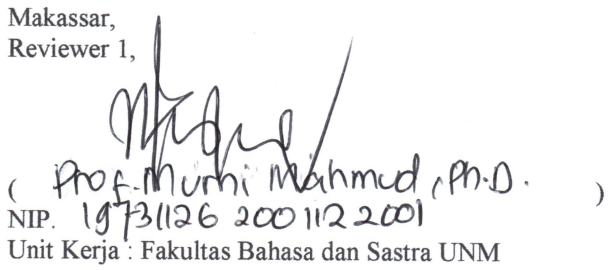 Makassar,
Reviewer 1,
( Prof. Murni Mahmud, Ph.D. )
NIP. 19731126 200112 2001
Unit Kerja : Fakultas Bahasa dan Sastra UNM